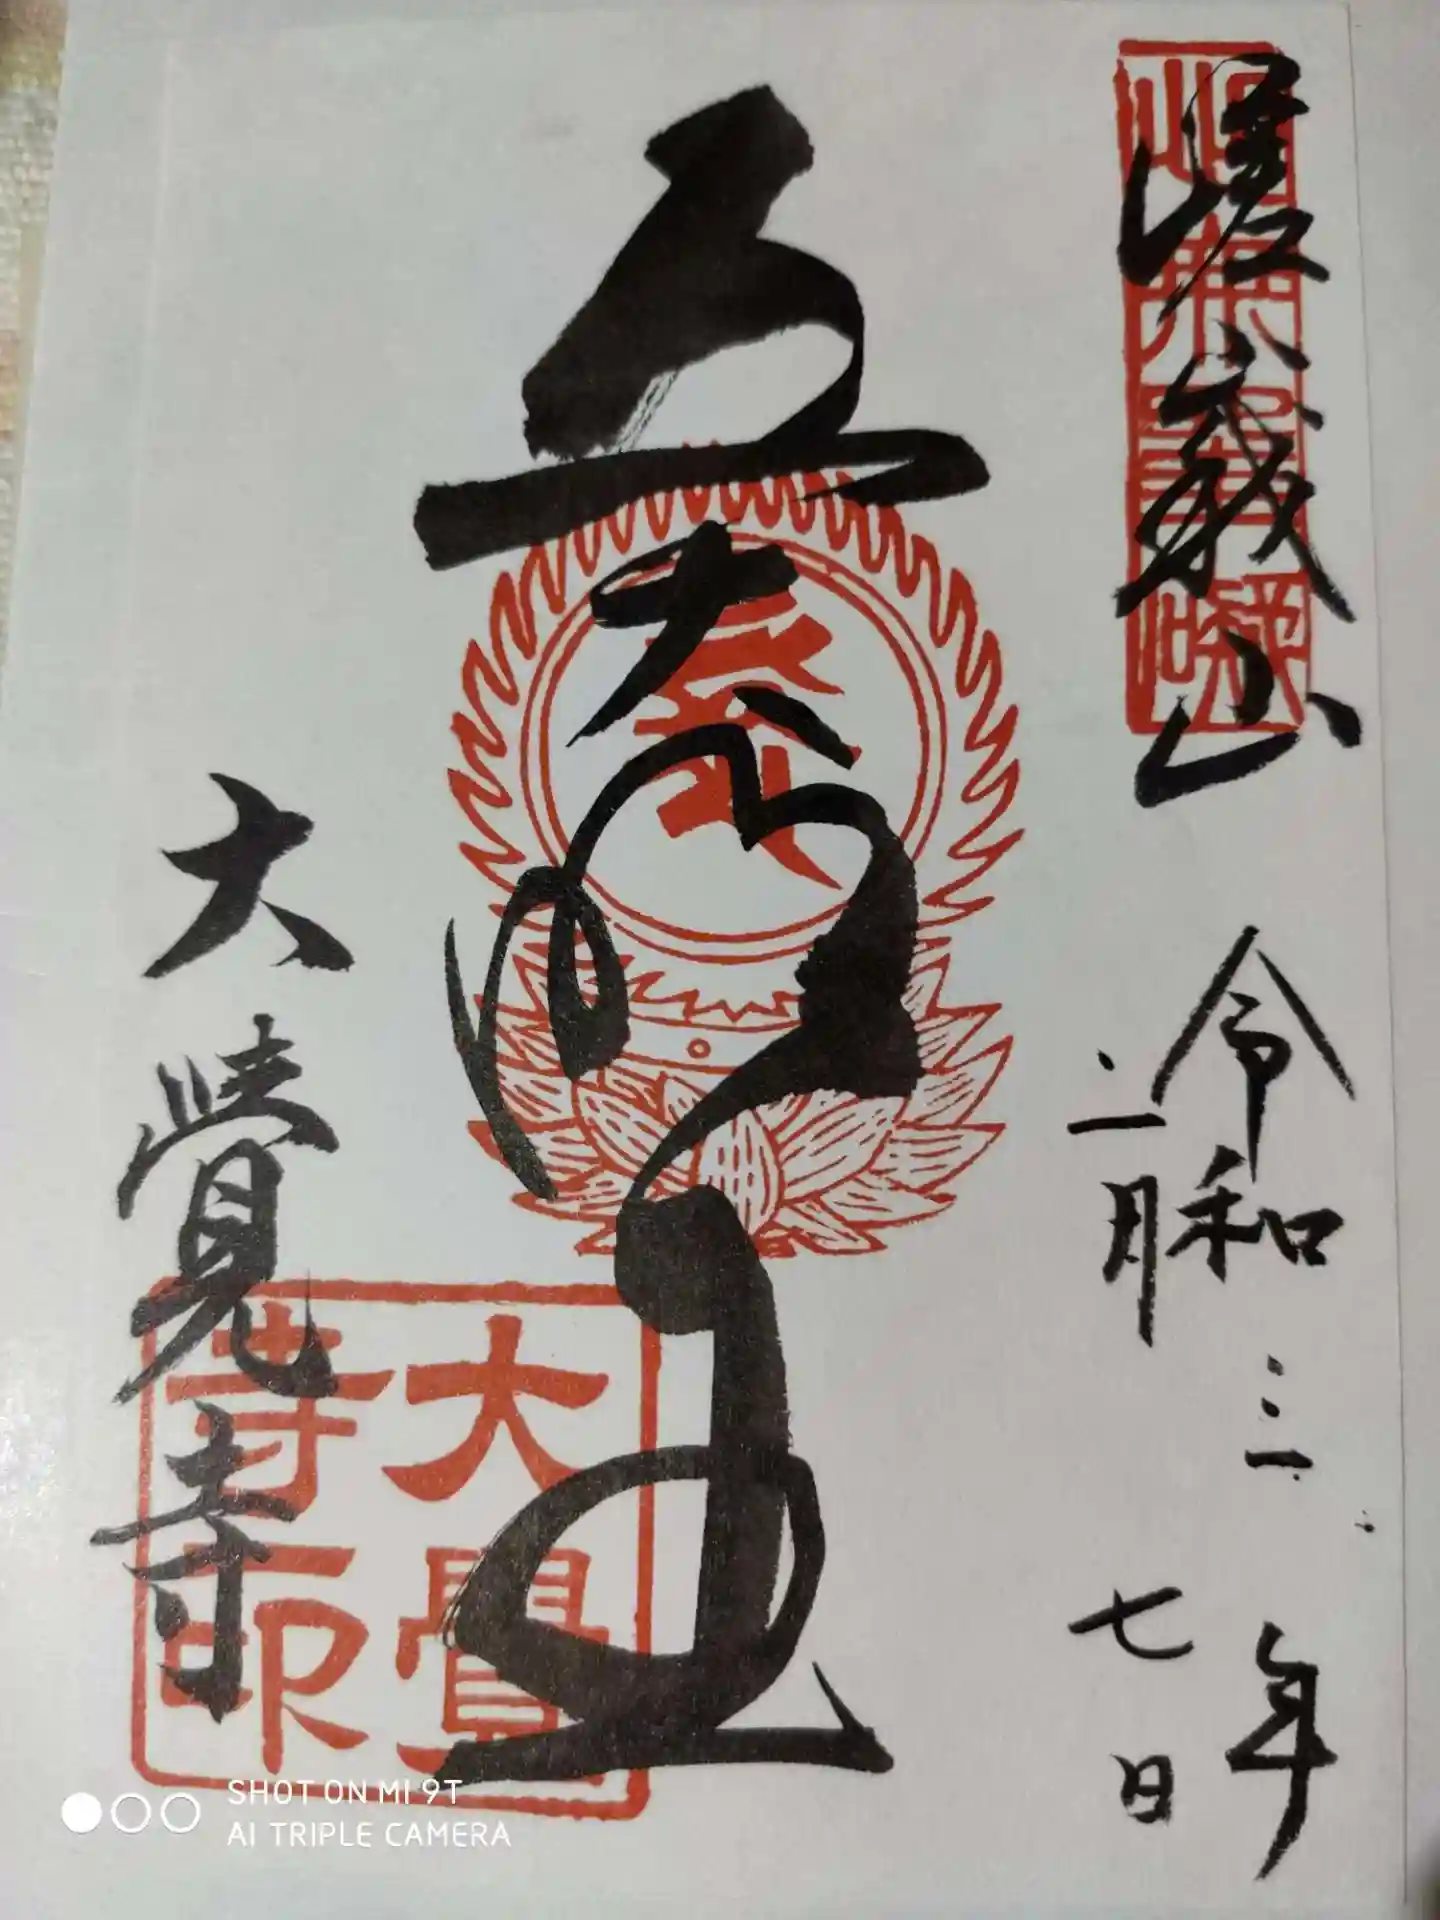 嵯峨山
令和三年
二月七日
五大明王
大覺寺
大覺
寺印
SHOT ON MI 9T
AI TRIPLE CAMERA